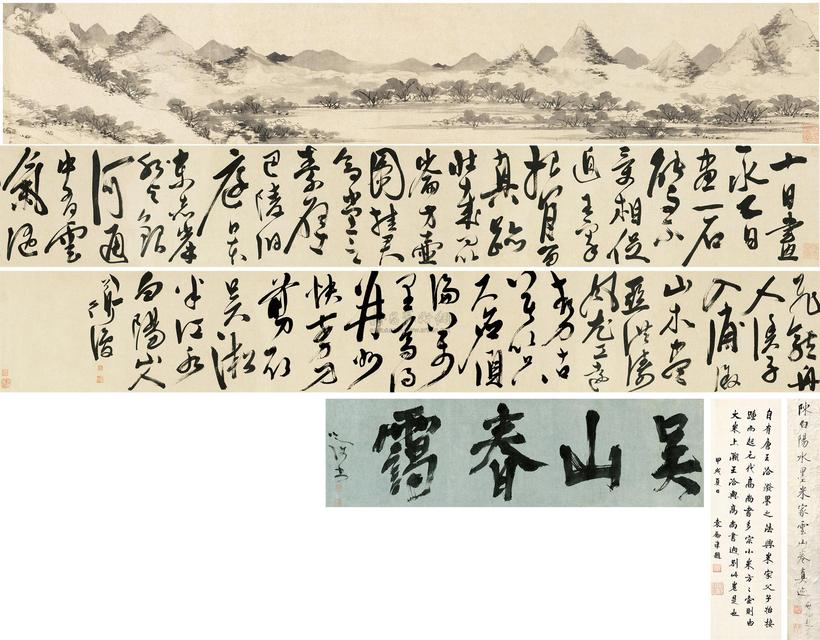 十日畫
水五日
畫一石
能事不
受相促
迫王宰
始肯留
真跡
壯哉崑
崙方壺
圖挂君
高堂之
素壁
巴陵洞
庭日本
東赤岸
水與銀
河通
中有雲
氣隨
飛龍舟
人漁子
入浦漵
山木盡
亞洪濤
風尤工遠
勢古
莫比咫
尺應須
論萬
里焉得
并州
快剪刀
剪取
吳淞
半江水
白陽山人
吳山春靄
自有唐王洽潑墨之法與米家父子相接
踵而起元代高尚書多宗小米方方壺則由
大米上溯王洽與高尚書迥別此卷是也
甲戌夏日 袁勵準題
陳白陽水墨米家雲山卷真迹